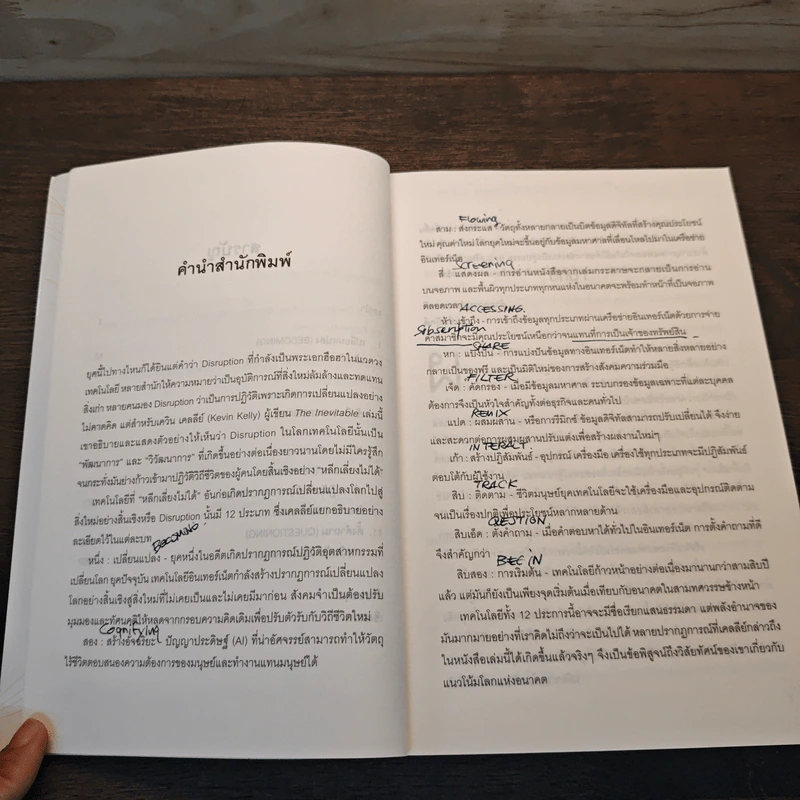 คำนำสำนักพิมพ์
ยุคนี้ไปทางไหนก็ได้ยินแต่คำว่า Disruption ที่กำลังเป็นพระเอกฮือฮาในแวดวง
เทคโนโลยี หลายสำนักให้ความหมายว่าเป็นอุบัติการณ์ที่สิ่งใหม่ล้มล้างและทดแทน
สิ่งเก่า หลายคนมอง Disruption ว่าเป็นการปฏิวัติเพราะเกิดการเปลี่ยนแปลงอย่าง
ไม่คาดคิด แต่สำหรับเควิน เคลลีย์ (Kevin Kelly) ผู้เขียน The Inevitable เล่มนี้
เขาอธิบายและแสดงตัวอย่างให้เห็นว่า Disruption ในโลกเทคโนโลยีนั้นเป็น
"พัฒนาการ" และ "วิวัฒนาการ" ที่เกิดขึ้นอย่างต่อเนื่องยาวนานโดยไม่มีใครรู้สึก
จนกระทั่งมันย่างก้าวเข้ามาปฏิวัติวิถีชีวิตของผู้คนโดยสิ้นเชิงอย่าง "หลีกเลี่ยงไม่ได้"
เทคโนโลยีที่ "หลีกเลี่ยงไม่ได้" อันก่อเกิดปรากฏการณ์เปลี่ยนแปลงโลกไปสู่
สิ่งใหม่อย่างสิ้นเชิงหรือ Disruption นั้นมี 12 ประเภท ซึ่งเคลลีย์แยกอธิบายอย่าง
ละเอียดไว้ในแต่ละบท
BECOMING
หนึ่ง : เปลี่ยนแปลง - ยุคหนึ่งในอดีตเกิดปรากฏการณ์ปฏิวัติอุตสาหกรรมที่
เปลี่ยนโลก ยุคปัจจุบัน เทคโนโลยีอินเทอร์เน็ตกำลังสร้างปรากฏการณ์เปลี่ยนแปลง
โลกอย่างสิ้นเชิงสู่สิ่งใหม่ที่ไม่เคยเป็นและไม่เคยมีมาก่อน สังคมจำเป็นต้องปรับ
มุมมองและทัศนคติให้หลุดจากกรอบความคิดเดิมเพื่อปรับตัวรับกับวิถีชีวิตใหม่
Cognifying
สอง : สร้างอัจฉริยะ - ปัญญาประดิษฐ์ (AI) ที่น่าอัศจรรย์สามารถทำให้วัตถุ
ไร้ชีวิตตอบสนองความต้องการของมนุษย์และทำงานแทนมนุษย์ได้
Flowing
สาม : ส่งกระแส - วัตถุทั้งหลายกลายเป็นบิตข้อมูลดิจิทัลที่สร้างคุณประโยชน์
ใหม่ คุณค่าใหม่ โลกยุคใหม่จะขึ้นอยู่กับข้อมูลมหาศาลที่เลื่อนไหลไปมาในเครือข่าย
อินเทอร์เน็ต
Screening
สี่ : แสดงผล - การอ่านหนังสือจากเล่มกระดาษจะกลายเป็นการอ่าน
บนจอภาพ และพื้นผิวทุกประเภททุกหนแห่งในอนาคตจะพร้อมทำหน้าที่เป็นจอภาพ
ตลอดเวลา
ACCESSING.
ห้า : เข้าถึง - การเข้าถึงข้อมูลทุกประเภทผ่านเครือข่ายอินเทอร์เน็ตด้วยการจ่าย
Subscription
ค่าสมาชิกจะมีคุณประโยชน์เหนือกว่าจนแทนที่การเป็นเจ้าของทรัพย์สิน
SHARE
หก : แบ่งปัน - การแบ่งปันข้อมูลทางอินเทอร์เน็ตทำให้หลายสิ่งหลายอย่าง
กลายเป็นของฟรี และเป็นมิติใหม่ของการสร้างสังคมความร่วมมือ
FILTER
เจ็ด : คัดกรอง - เมื่อมีข้อมูลมหาศาล ระบบกรองข้อมูลเฉพาะที่แต่ละบุคคล
ต้องการจึงเป็นหัวใจสำคัญทั้งต่อธุรกิจและคนทั่วไป
REMIX
แปด : ผสมผสาน - หรือการรีมิกซ์ ข้อมูลดิจิทัลสามารถปรับเปลี่ยนได้ จึงง่าย
และสะดวกต่อการผสมผสานปรับแต่งเพื่อสร้างผลงานใหม่ๆ
INTERACT
เก้า : สร้างปฏิสัมพันธ์ - อุปกรณ์ เครื่องมือ เครื่องใช้ทุกประเภทจะมีปฏิสัมพันธ์
ตอบโต้กับผู้ใช้งาน
TRACK
สิบ : ติดตาม - ชีวิตมนุษย์ยุคเทคโนโลยีจะใช้เครื่องมือและอุปกรณ์ติดตาม
จนเป็นเรื่องปกติเพื่อประโยชน์หลากหลายด้าน
QUESTION
สิบเอ็ด : ตั้งคำถาม - เมื่อคำตอบหาได้ทั่วไปในอินเทอร์เน็ต การตั้งคำถามที่ดี
จึงสำคัญกว่า
BEGIN
สิบสอง : การเริ่มต้น - เทคโนโลยีก้าวหน้าอย่างต่อเนื่องมานานกว่าสามสิบปี
แล้ว แต่มันก็ยังเป็นเพียงจุดเริ่มต้นเมื่อเทียบกับอนาคตในสามทศวรรษข้างหน้า
เทคโนโลยีทั้ง 12 ประการนี้อาจจะมีชื่อเรียกแสนธรรมดา แต่พลังอำนาจของ
มันมากมายอย่างที่เราคิดไม่ถึงว่าจะเป็นไปได้ หลายปรากฏการณ์ที่เคลลีย์กล่าวถึง
ในหนังสือเล่มนี้ได้เกิดขึ้นแล้วจริงๆ จึงเป็นข้อพิสูจน์ถึงวิสัยทัศน์ของเขาเกี่ยวกับ
แนวโน้มโลกแห่งอนาคต